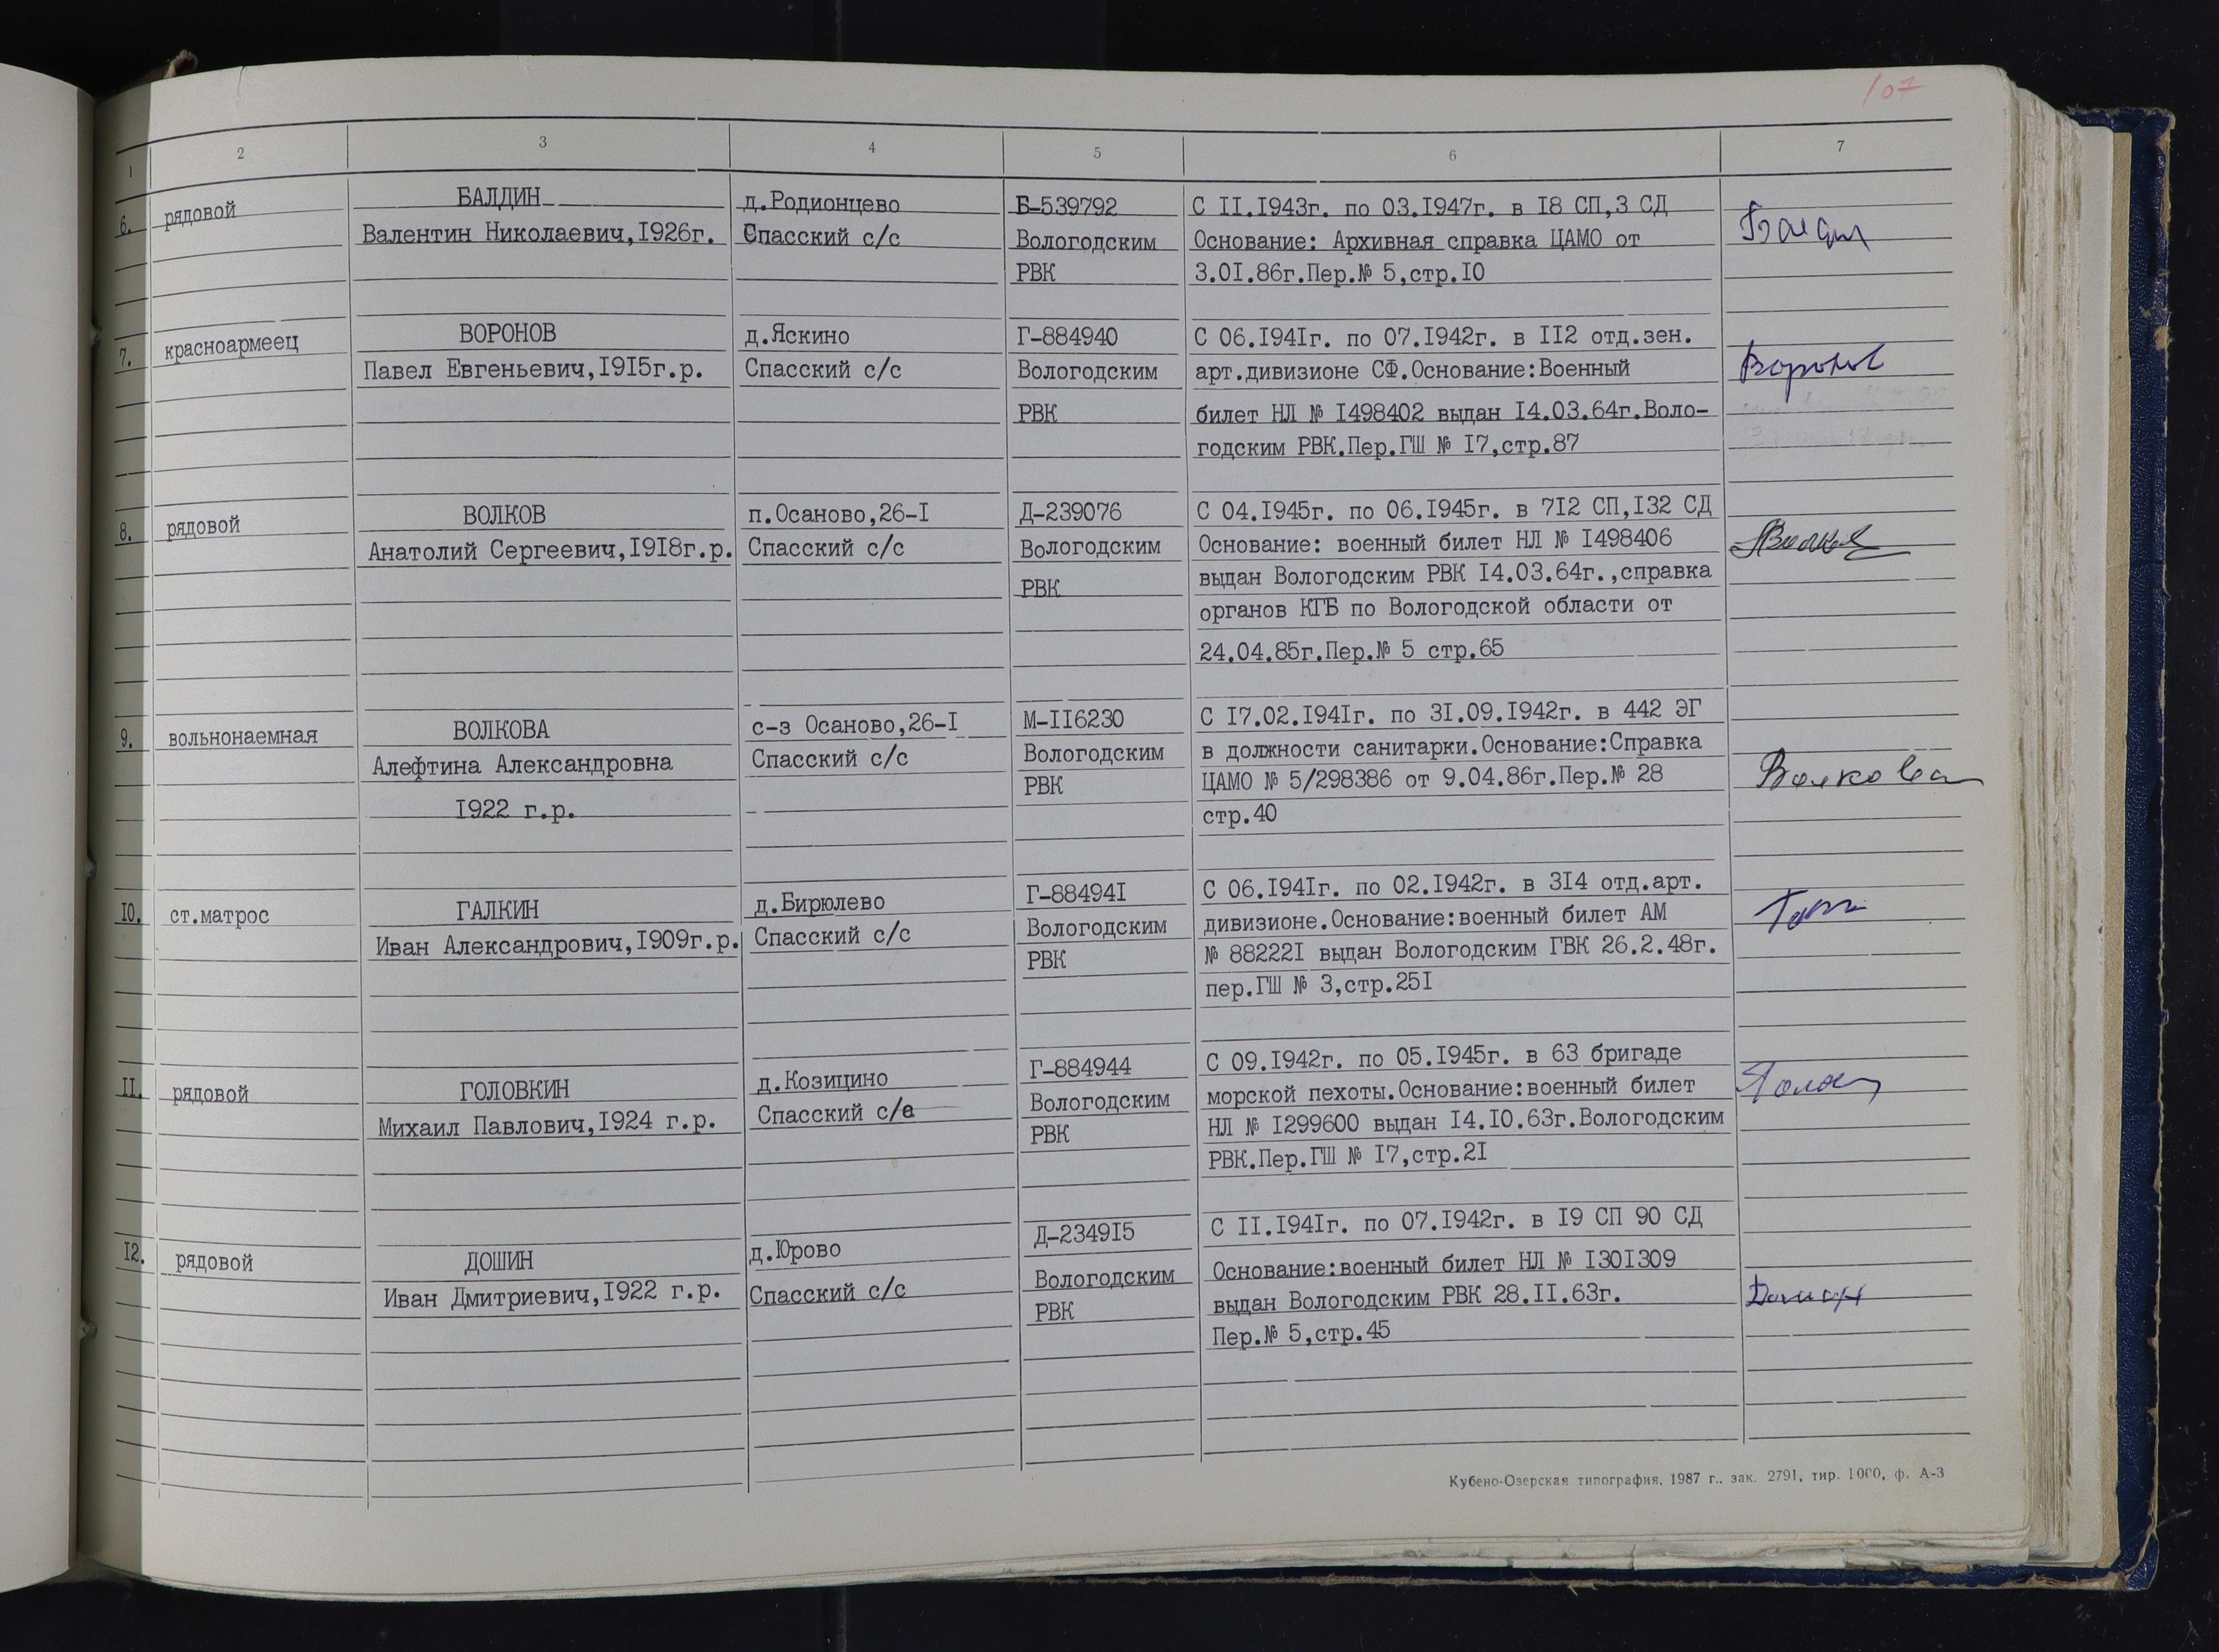 107
1 2 3 4 5 6 7
6. рядовой БАЛДИН д.Родионцево Б-539792 С II.I943г. по 03.I947г. в I8 СП,3 СД
Валентин Николаевич,I926г. Спасский с/с Вологодским Основание: Архивная справка ЦАМО от
РВК 3.0I.86г.Пер.№ 5,стр.I0
7. красноармеец ВОРОНОВ д.Яскино Г-884940 С 06.I94Iг. по 07.I942г. в II2 отд.зен.
Павел Евгеньевич,I9I5г.р. Спасский с/с Вологодским арт.дивизионе СФ.Основание:Военный Воронов
РВК билет НЛ № I498402 выдан I4.03.64г.Воло-
годским РВК.Пер.ГШ № I7,стр.87
8. рядовой ВОЛКОВ п.Осаново,26-I Д-239076 С 04.I945г. по 06.I945г. в 7I2 СП,I32 СД
Анатолий Сергеевич,I9I8г.р. Спасский с/с Вологодским Основание: военный билет НЛ № I498406
РВК выдан Вологодским РВК I4.03.64г.,справка
органов КГБ по Вологодской области от
24.04.85г.Пер.№ 5 стр.65
9. вольнонаемная ВОЛКОВА с-з Осаново,26-I М-II6230 С I7.02.I94Iг. по 3I.09.I942г. в 442 ЭГ
Алефтина Александровна Спасский с/с Вологодским в должности санитарки.Основание:Справка
I922 г.р. РВК ЦАМО № 5/298386 от 9.04.86г.Пер.№ 28 Волкова
стр.40
I0. ст.матрос ГАЛКИН д.Бирюлево Г-88494I С 06.I94Iг. по 02.I942г. в 3I4 отд.арт.
Иван Александрович,I909г.р. Спасский с/с Вологодским дивизионе.Основание:военный билет АМ
РВК № 88222I выдан Вологодским ГВК 26.2.48г.
пер.ГШ № 3,стр.25I
II. рядовой ГОЛОВКИН д.Козицино Г-884944 С 09.I942г. по 05.I945г. в 63 бригаде
Михаил Павлович,I924 г.р. Спасский с/с Вологодским морской пехоты.Основание:военный билет
РВК НЛ № I299600 выдан I4.I0.63г.Вологодским
РВК.Пер.ГШ № I7,стр.2I
I2. рядовой ДОШИН д.Юрово Д-2349I5 С II.I94Iг. по 07.I942г. в I9 СП 90 СД
Иван Дмитриевич,I922 г.р. Спасский с/с Вологодским Основание:военный билет НЛ № I30I309
РВК выдан Вологодским РВК 28.II.63г.
Пер.№ 5,стр.45
Кубено-Озерская типография, 1987 г., зак. 2791, тир. 1000, ф. А-3